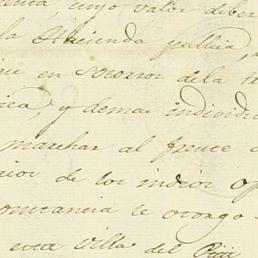 cuyo valor deber
la Hacienda publica,
en Socorros de la tr
y demas individu
marchar al frente
de los indios op
constancia le otorgo
esta Villa del